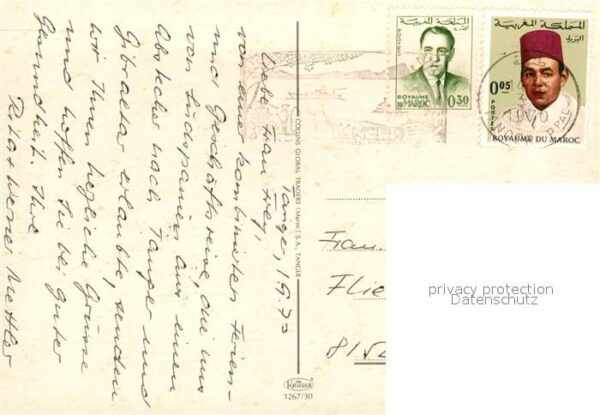 Tanger, 1.9.73
Liebe Frau Frey,
von einer kombinierten Ferien-
und Geschäftsreise, die uns
von Südspanien aus einen
Abstecher nach Tanger und
Gibraltar erlaubte, senden
wir Ihnen herzliche Grüsse
und hoffen Sie bei guter
Gesundheit. Ihre
Rita + Werner Mettler
COLLINS GLOBAL TRADERS (Maroc) S.A. TANGER
المملكة المغربية
البريد
POSTES
ROYAUME
DU MAROC
0,30
المملكة المغربية
البريد
0.05
POSTES
ROYAUME DU MAROC
1970
Frau
Flie
8152
privacy protection
Datenschutz
KRÜGER
1267/30